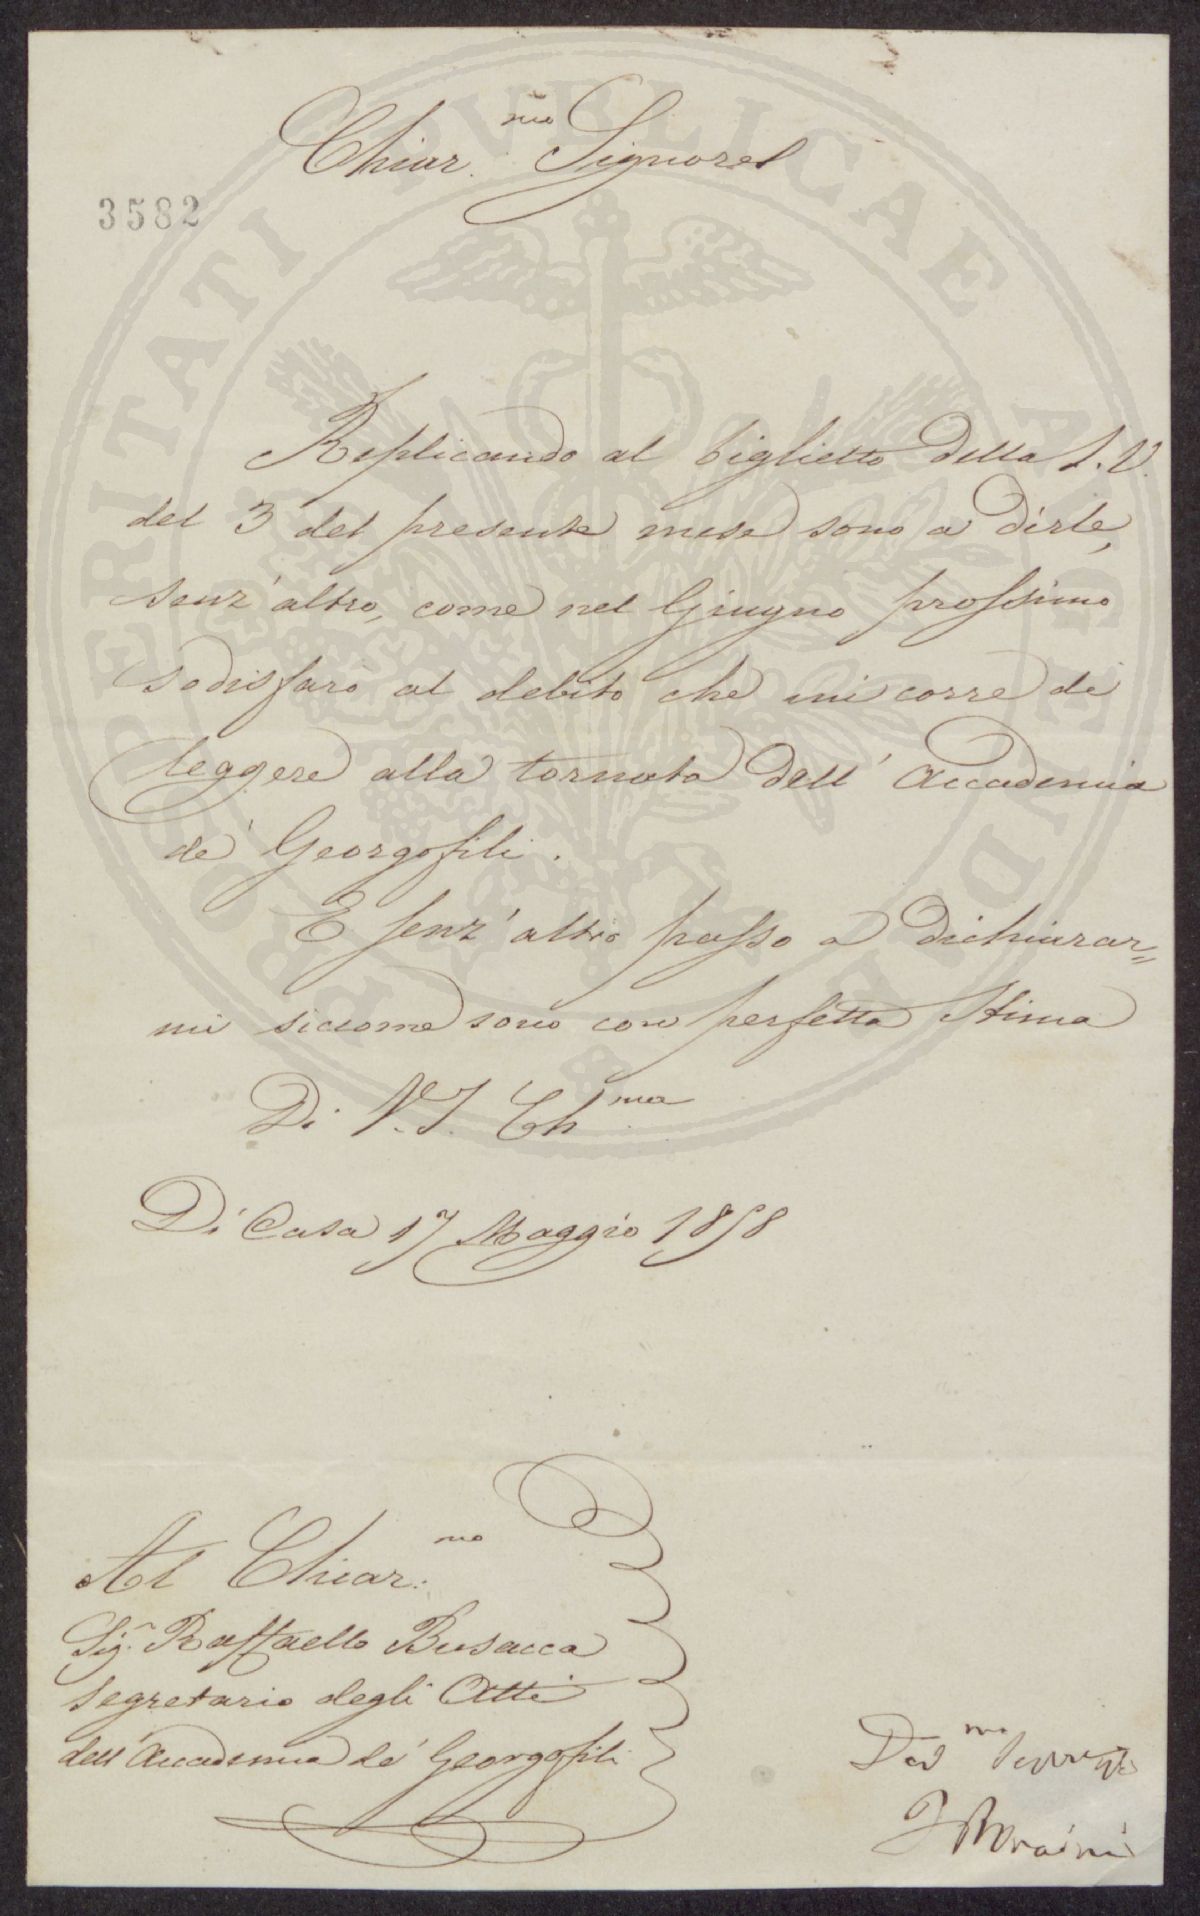 Chiar.mo Signore
3582
Replicando al biglietto della S. V.
del 3 del presente mese sono a dirle,
senz'altro, come nel Giugno prossimo
sodisfarò al debito che mi corre di
leggere alla tornata dell'Accademia
de' Georgofili.
E senz'altro passo a dichiarar=
mi siccome sono con perfetta stima
Di V. S. Ch.ma
Di Casa 17 Maggio 1858
Al Chiar.mo
Sig.r Raffaello Busacca
Segretario degli Atti
dell'Accademia de' Georgofili
Dev.mo
PROSPERITATI PVBLICAE AVGENDAE